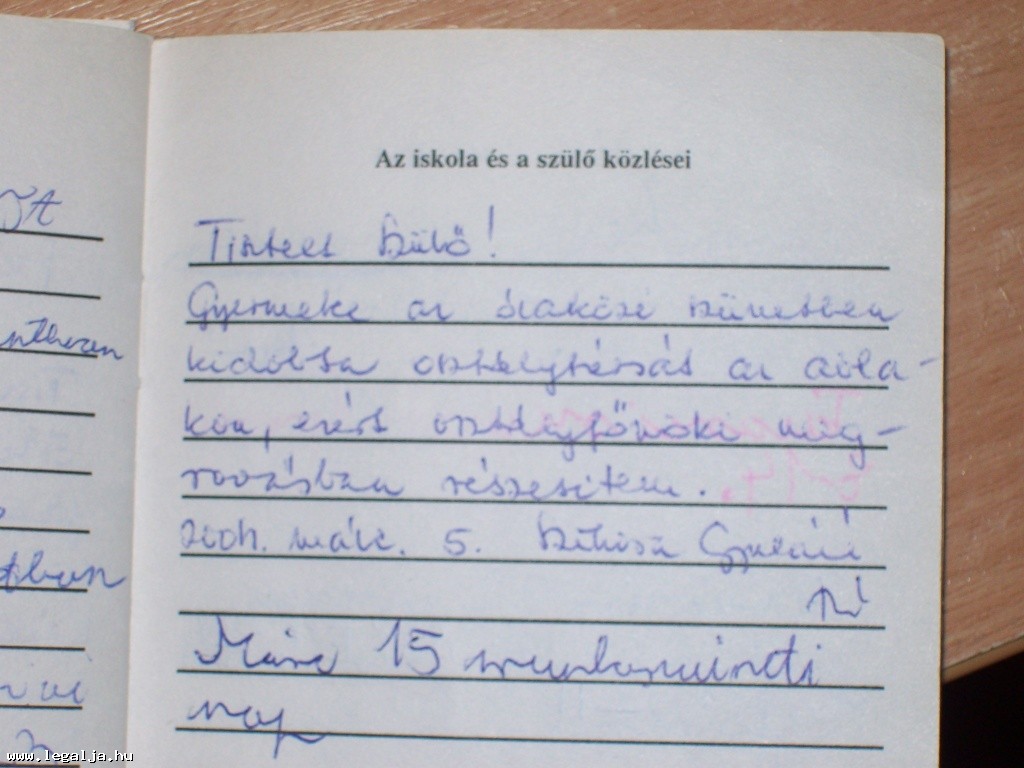 Az iskola és a szülő közlései
Tisztelt Szülő!
Gyermeke az óraközi szünetben
kidobta osztálytársát az abla-
kon, ezért osztályfőnöki meg-
rovásban részesítem.
2004. márc. 5. Gyuláné
Márc 15 munkaszüneti
nap
www.legalja.hu